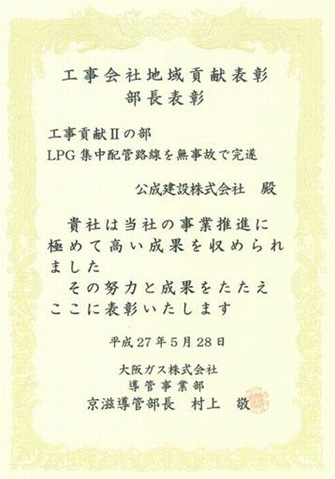 工事会社地域貢献表彰
部長表彰
工事貢献Ⅱの部
LPG集中配管路線を無事故で完遂
公成建設株式会社 殿
貴社は当社の事業推進に
極めて高い成果を収められ
ました
その努力と成果をたたえ
ここに表彰いたします
平成27年5月28日
大阪ガス株式会社
導管事業部
京滋導管部長 村上 敬